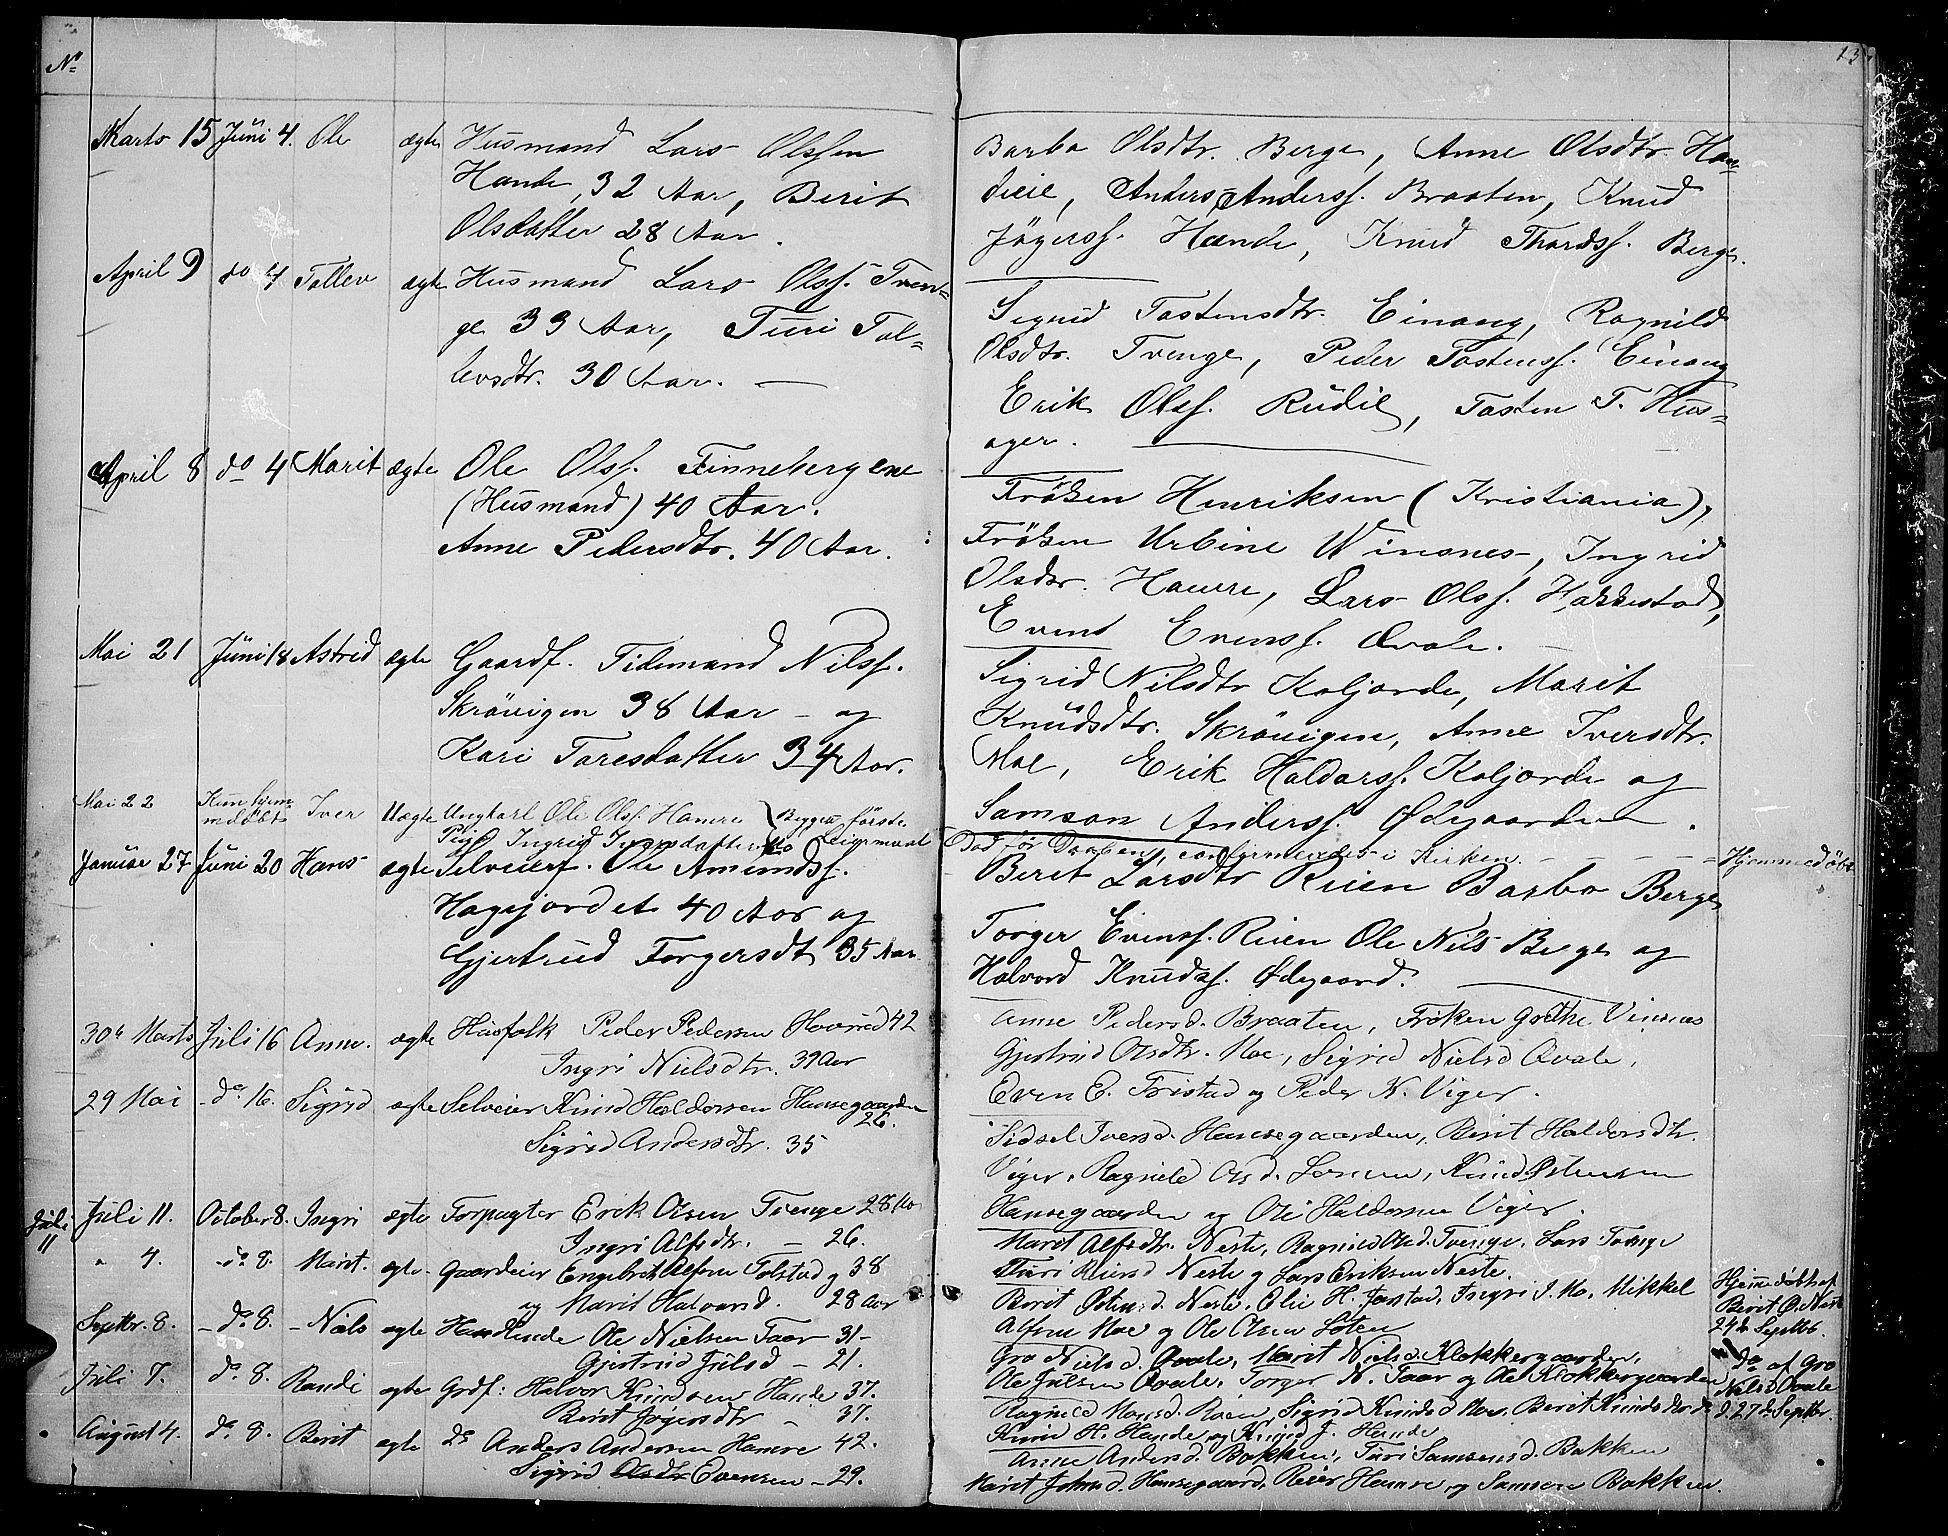 No
13
Marts 15 Juni 4. Ole ægte Husmand Lars Olssen
Hande, 32 Aar, Berit
Olsdatter 28 Aar.
Barbo Olsdtr. Berge, Anne Olsdtr. Han-
deeie, Anders Anderss. Braaten, Knud
Jögerss. Hande, Knud Thordss. Berge.
April 9 do 4 Tollev ægte Husmand Lars Olss. Tven-
ge 33 Aar, Turi Tol-
levsdtr. 30 Aar.
Sigrid Tostensdtr. Einang, Ragnild
Olsdtr. Tvenge, Peder Tostenss. Einang
Erik Olss. Rudie, Tosten T. Hus-
ager.
April 8 do 4 Marit ægte Ole Olss. Finnebergene
(Husmand) 40 Aar.
Anne Pedersdtr. 40 Aar.
Fröken Henriksen (Kristiania),
Fröken Urbine Winsnes, Ingrid
Olsdtr. Hamre, Lars Olss. Hakkestad,
Evend Evenss. Qvale.
Mai 21 Juni 18 Astrid ægte Gaardf. Tidemand Nilss.
Skröuigen 38 Aar - og
Kari Taresdatter 34 Aar.
Sigrid Nilsdtr Koljorde, Marit
Knudsdtr. Skröuigen, Anne Iversdtr.
Moe, Erik Haldorss. Koljorde og
Samson Anderss. Ødegaarden.
Mai 22 Kun hjem-
medöbt Iver Uægte Ungkarl Ole Olss. Hamre Begges förste
Pige Ingrid Leiermaal
Död för Daaben, i Kirken.
Januar 27 Juni 20 Hans ægte Selveierf. Ole Amundss.
Hagejordet 40 Aar og
Gjertrud Torgersdt 35 Aar
Berit Larsdtr Rien Barbo Berge
Torger Evenss. Rien Ole Nils Berge og
Halvord Knudss. Ødegaard.
Hjemmedöbt
30te Marts Juli 16 Anne. ægte Husfolk Peder Pedersen Hovrud 42
Ingri Nielsdtr. 39 Aar
Anne Pedersd. Braaten, Fröken Grethe Vinsnes
Gjertrud Olsdtr. Moe, Sigrid Nielsd Qvale,
Even E. Tristad og Peder N. Viger.
29 Mai do 16. Sigrid ægte Selveier Knud Haldorsen Hansegaarden
26.
Sigrid Andersdtr. 35
Sidsel Iversd. Hansegaarden, Berit Haldorsdtr.
Viger, Ragnild Olsd. Knud Østensen
Hansegaarden og Ole Haldorsen Viger.
Juli
11
Juli 11. October 8. Ingri ægte Forpagter Erik Olsen Tvenge 28 Aar
Ingri Alfsdtr. - 26.
Marit Alfsdtr. Neste, Ragnild Olsd. Tvenge, Lars Tvenge
Turi Neste og Lars Eriksen Neste.
" 4. do 8. Marit. ægte Gaardeier Engebret Alfsen Tolstad 38
og Marit Halvorsd. 28 Aar
Berit Østensd. Neste, Olie H. Jonstad, Ingri I. Mo, Mikkel
Alfsen Moe og Ole Olsen Loten
Hjemmedöbt af
Berit Ø. Neste
24de Septb.
Septbr. 8. do 8. Nils ægte Ole Nielsen Faar 31
Gjertrud Julsd - 21.
Gro Nielsd. Qvale, Marit Nielsd. Klokkergaarden,
Ole Julsen Qvale, Torger N. Faar og Ole Klokkergaarden
do af Gro
Nielsd Qvale
d. 27de Septbr.
Juli 7. do 8. Randi ægte Grdf: Halvor Knudsen Hande 37.
Berit Jögersdtr - 37.
Ragnild Monsd. Roien, Sigrid Knudsd Moe, Berit Knudsd.
Knud H. Hande og Knud J. Hande
August 4. do 8. Berit ægte do Anders Andersen Hamre 42.
Sigrid Evensen - 29.
Anne Andersd. Bakken, Turi Samsonsd. Bakken
Marit Johnsd. Hansegaard, Reier Hamre og Samson Bakken.